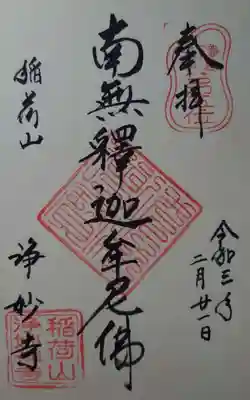 奉拝
令和三年
二月廿一日
南無釋迦牟尼佛
稲荷山
浄妙寺
稲荷山
浄妙寺